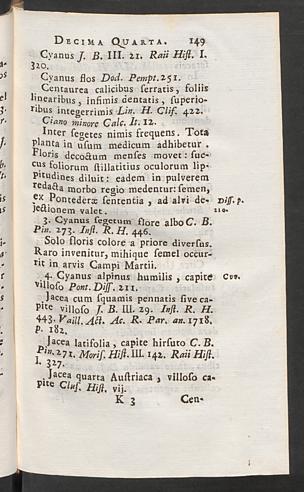 DECIMA QUARTA. 149
Cyanus J. B. III. 21. Raii Hist. I.
320.
Cyanus flos Dod. Pempt. 251.
Centaurea calicibus serratis, foliis
linearibus, infimis dentatis, superio-
ribus integerrimis Lin. H. Clif. 422.
Ciano minore Calc. It. 12.
Inter segetes nimis frequens. Tota
planta in usum medicum adhibetur.
Floris decoctum menses movet: suc-
cus foliorum stillatitius oculorum lip-
pitudines diluit: eadem in pulverem
redacta morbo regio medentur: semen,
ex Pontederæ sententia, ad alvi de- Diss. p.
jectionem valet. 210.
3. Cyanus segetum flore albo C. B.
Pin. 273. Inst. R. H. 446.
Solo floris colore a priore diversus.
Raro invenitur, mihique semel occur-
rit in arvis Campi Martii.
4. Cyanus alpinus humilis, capite Cov.
villoso Pont. Diss. 211.
Jacea cum squamis pennatis sive ca-
pite villoso J. B. III. 29. Inst. R. H.
443. Vaill. Act. Ac. R. Par. an. 1718.
p. 182.
Jacea latifolia, capite hirsuto C. B.
Pin. 271. Moris. Hist. III. 142. Raii Hist.
I. 327.
Jacea quarta Austriaca, villoso ca-
pite Clus. Hist. vij.
K 3 Cen-